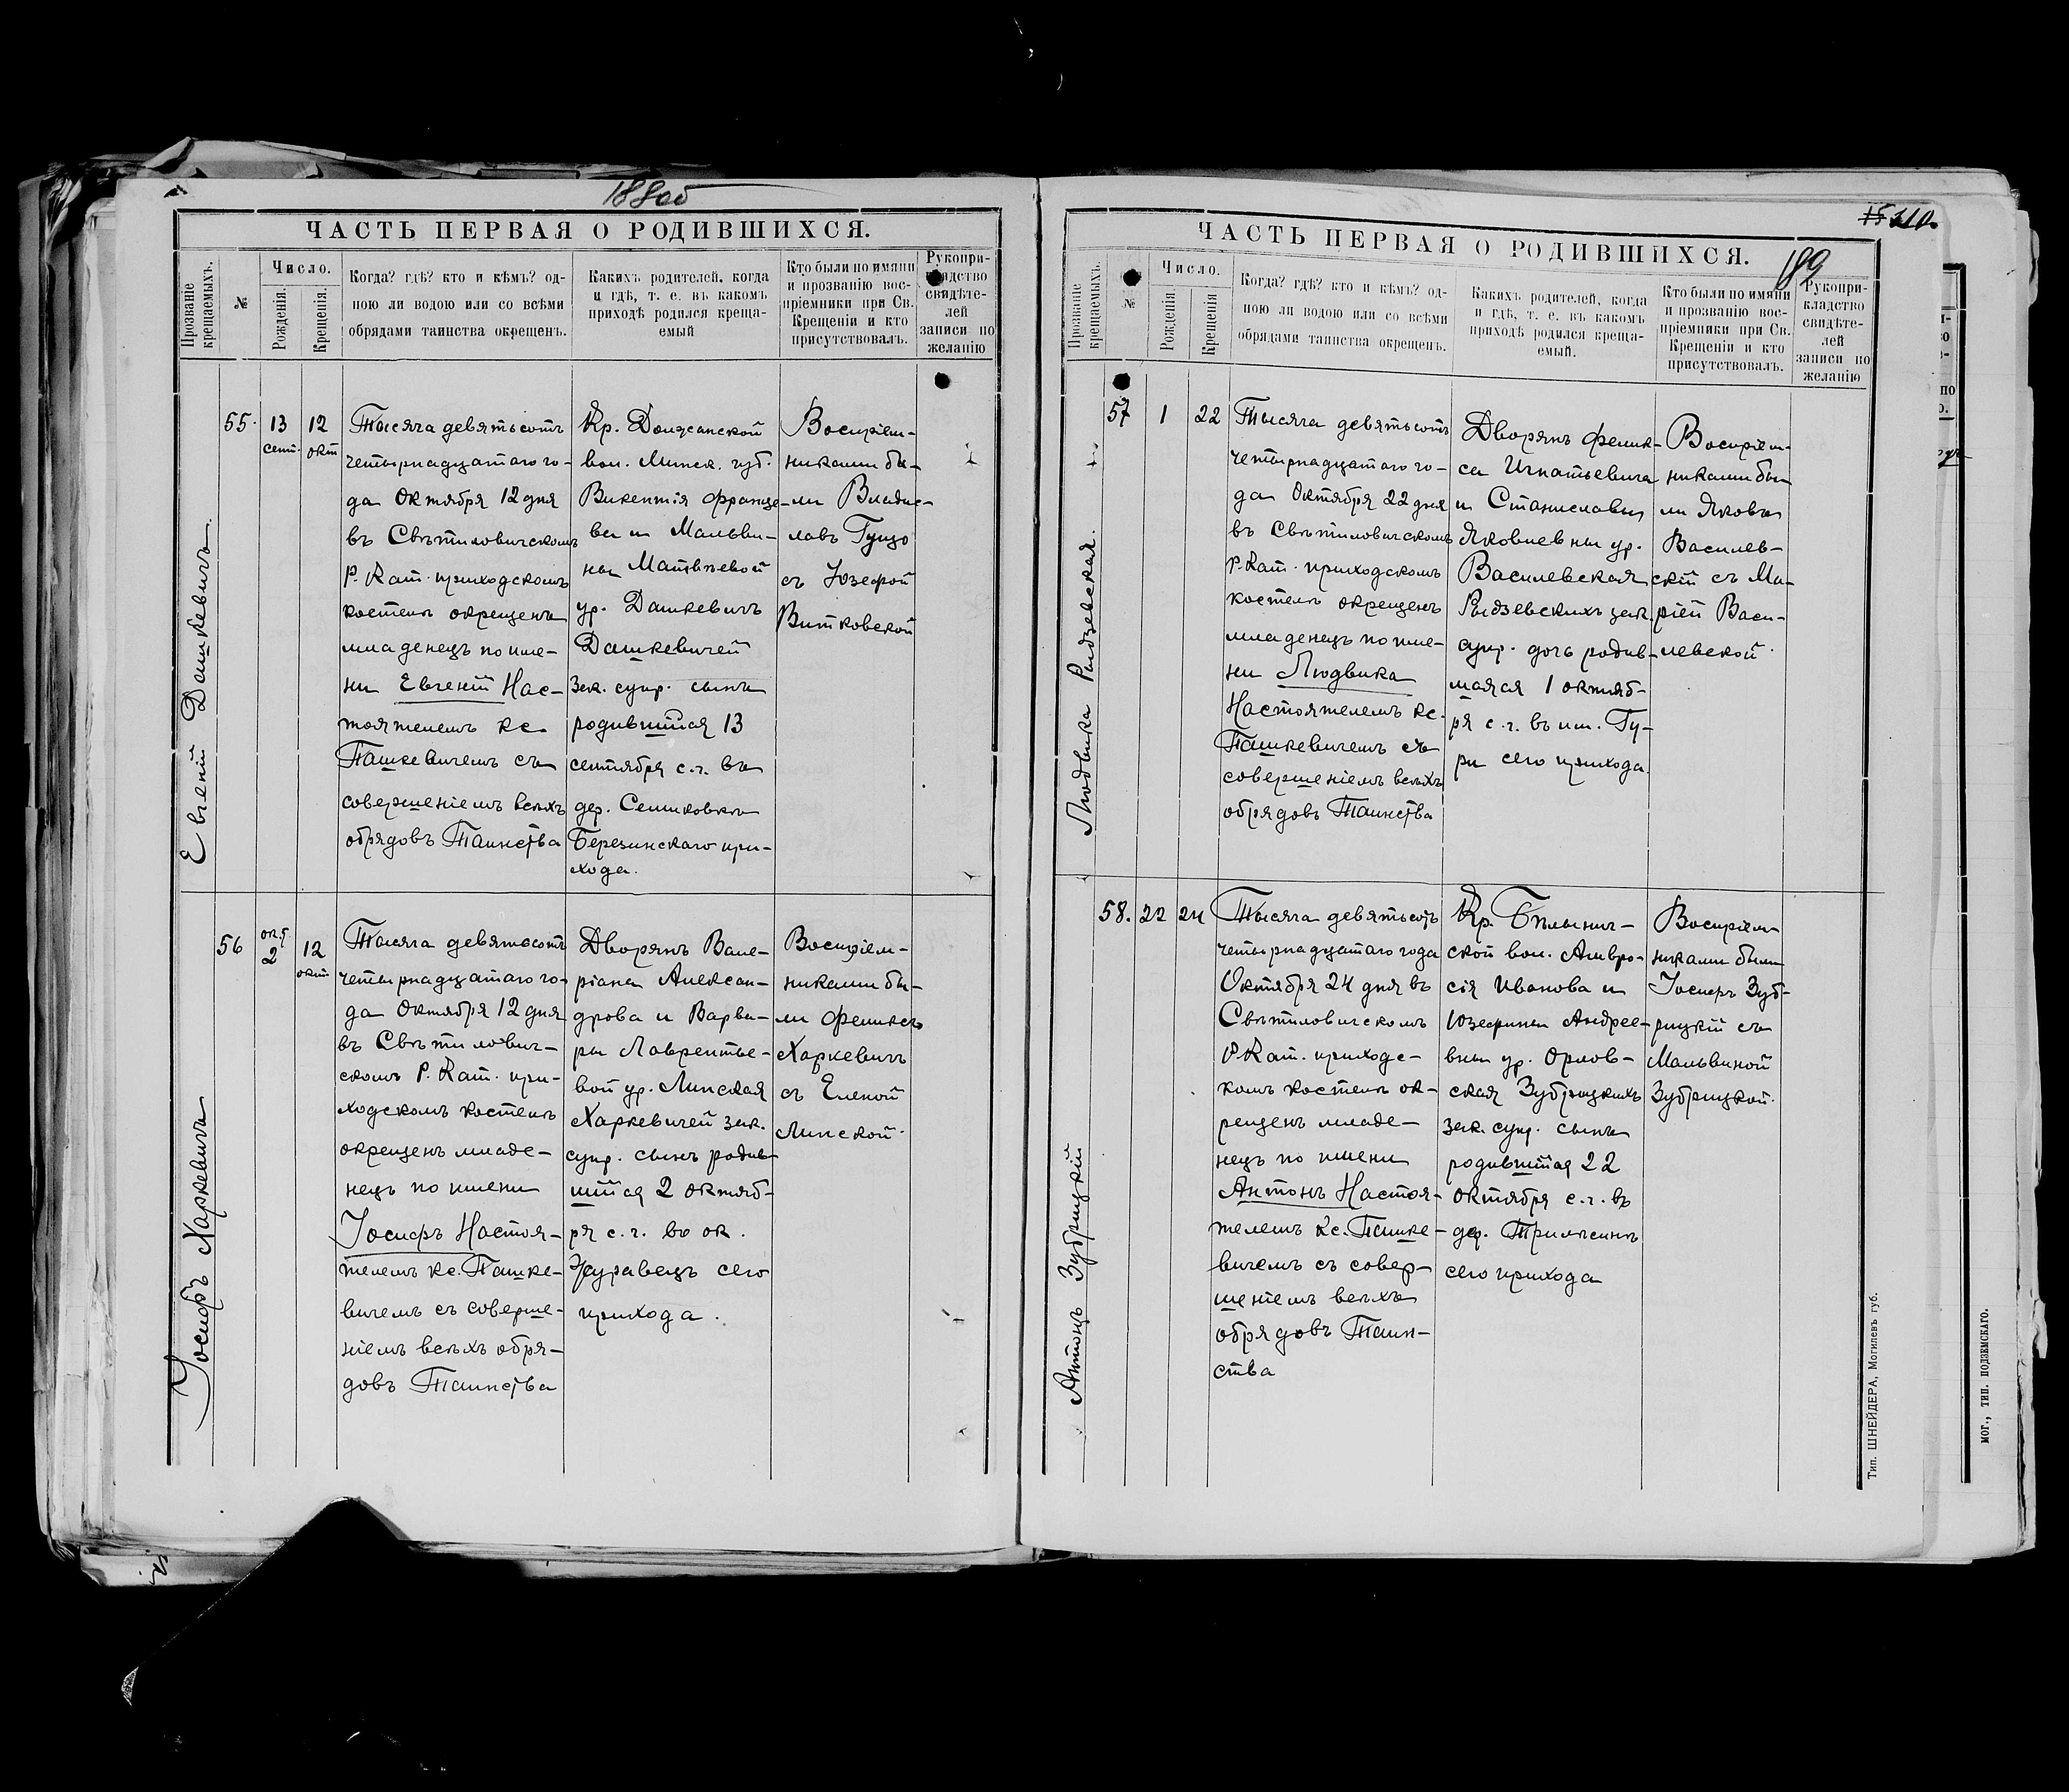 188об
ЧАСТЬ ПЕРВАЯ О РОДИВШИХСЯ.
Прозваніе крещаемыхъ.
№
Число.
Рожденія.
Крещенія.
Когда? гдѣ? кто и кѣмъ? од-
ною ли водою или со всѣми
обрядами таинства окрещенъ.
Какихъ родителей, когда
и гдѣ, т. е. въ какомъ
приходѣ родился креща-
емый
Кто были по имяни
и прозванію вос-
пріемники при Св.
Крещеніи и кто
присутствовалъ.
Рукопри-
кладство
свидѣте-
лей
записи по
желанію
Евгеній Дашкевичъ.
55.
13
сент.
12
окт
Тысяча девятьсотъ
четырнадцатаго го-
да Октября 12 дня
въ Свѣтиловичскомъ
Р. Кат. приходскомъ
костелѣ окрещенъ
младенецъ по име-
ни Евгеній Нас-
тоятелемъ кс.
Пашкевичемъ съ
совершеніемъ всѣхъ
обрядовъ Таинства
Кр. Должанской
вол. Минск. губ.
Викентія Францe-
ва и Мальви-
ны Матвѣевой
ур. Дашкевичъ
Дашкевичей
зак. супр. сынъ
родившійся 13
сентября с.г. въ
дер. Селиковка
Березинскаго при-
хода.
Воспріем-
никами бы-
ли Владис-
лавъ Гуцо
съ Юзефой
Витковской
Іосифъ Харкевичъ
56
окт
2
12
окт.
Тысяча девятьсотъ
четырнадцатаго го-
да Октября 12 дня
въ Свѣтилович-
скомъ Р. Кат. при-
ходскомъ костелѣ
окрещенъ младе-
нецъ по имени
Іосифъ Настоя-
телемъ кс. Пашке-
вичемъ съ соверше-
ніемъ всѣхъ обря-
довъ Таинства
Дворянъ Вале-
ріана Алексан-
дрова и Варва-
ры Лаврентье-
вой ур. Липская
Харкевичей зак.
супр. сынъ родив
шійся 2 октяб-
ря с.г. во ок.
Журавецъ сего
прихода.
Воспріем-
никами бы-
ли Феликсъ
Харкевичъ
съ Еленой
Липской.
15 210.
189
ЧАСТЬ ПЕРВАЯ О РОДИВШИХСЯ.
Прозваніе крещаемыхъ.
№
Число.
Рожденія.
Крещенія
Когда? гдѣ? кто и кѣмъ? од-
ною ли водою или со всѣми
обрядами таинства окрещенъ.
Какихъ родителей, когда
и гдѣ, т. е. въ какомъ
приходѣ родился креща-
емый.
Кто были по имяни
и прозванію вос-
пріемники при Св.
Крещеніи и кто
присутствовалъ.
Рукопри-
кладство
свидѣте-
лей
записи по
желанію
Людвика Рыдзевская.
57
1
22
Тысяча девятьсотъ
четырнадцатаго го-
да Октября 22 дня
въ Свѣтиловичскомъ
Р. Кат. приходскомъ
костелѣ окрещенъ
младенецъ по име-
ни Людвика
Настоятелемъ кс.
Пашкевичемъ съ
совершеніемъ всѣхъ
обрядовъ Таинства
Дворянъ Фелик-
са Игнатьевича
и Станиславы
Яковлевны ур.
Василевская
Рыдзевскихъ зак.
супр. дочь родив-
шаяся 1 октяб-
ря с.г. въ им. Гу-
ри сего прихода.
Воспріем-
никами бы-
ли Яковъ
Василев-
скій съ Ма-
ріей Васи-
левской.
Антонъ Зубрицкій
58.
22
24
Тысяча девятьсотъ
четырнадцатаго года
Октября 24 дня въ
Свѣтиловичскомъ
Р. Кат. приходс-
комъ костелѣ ок-
рещенъ младе-
нецъ по имени
Антонъ Настоя-
телемъ кс. Пашке-
вичемъ съ совер-
шеніемъ всѣхъ
обрядовъ Таин-
ства
Кр. Бѣлынич-
ской вол. Амвро-
сія Иванова и
Юзефины Андрее-
вны ур. Орлов-
ская Зубрицкихъ
зак. супр. сынъ
родившійся 22
Октября с.г. въ
дер. Трилѣсинѣ
сего прихода
Воспріем-
никами были
Іосифъ Зуб-
рицкій съ
Мальвиной
Зубрицкой.
Тип. ШНЕЙДЕРА, Могилевъ губ.
МОГ., ТИП. ПОДЗЕМСКАГО.